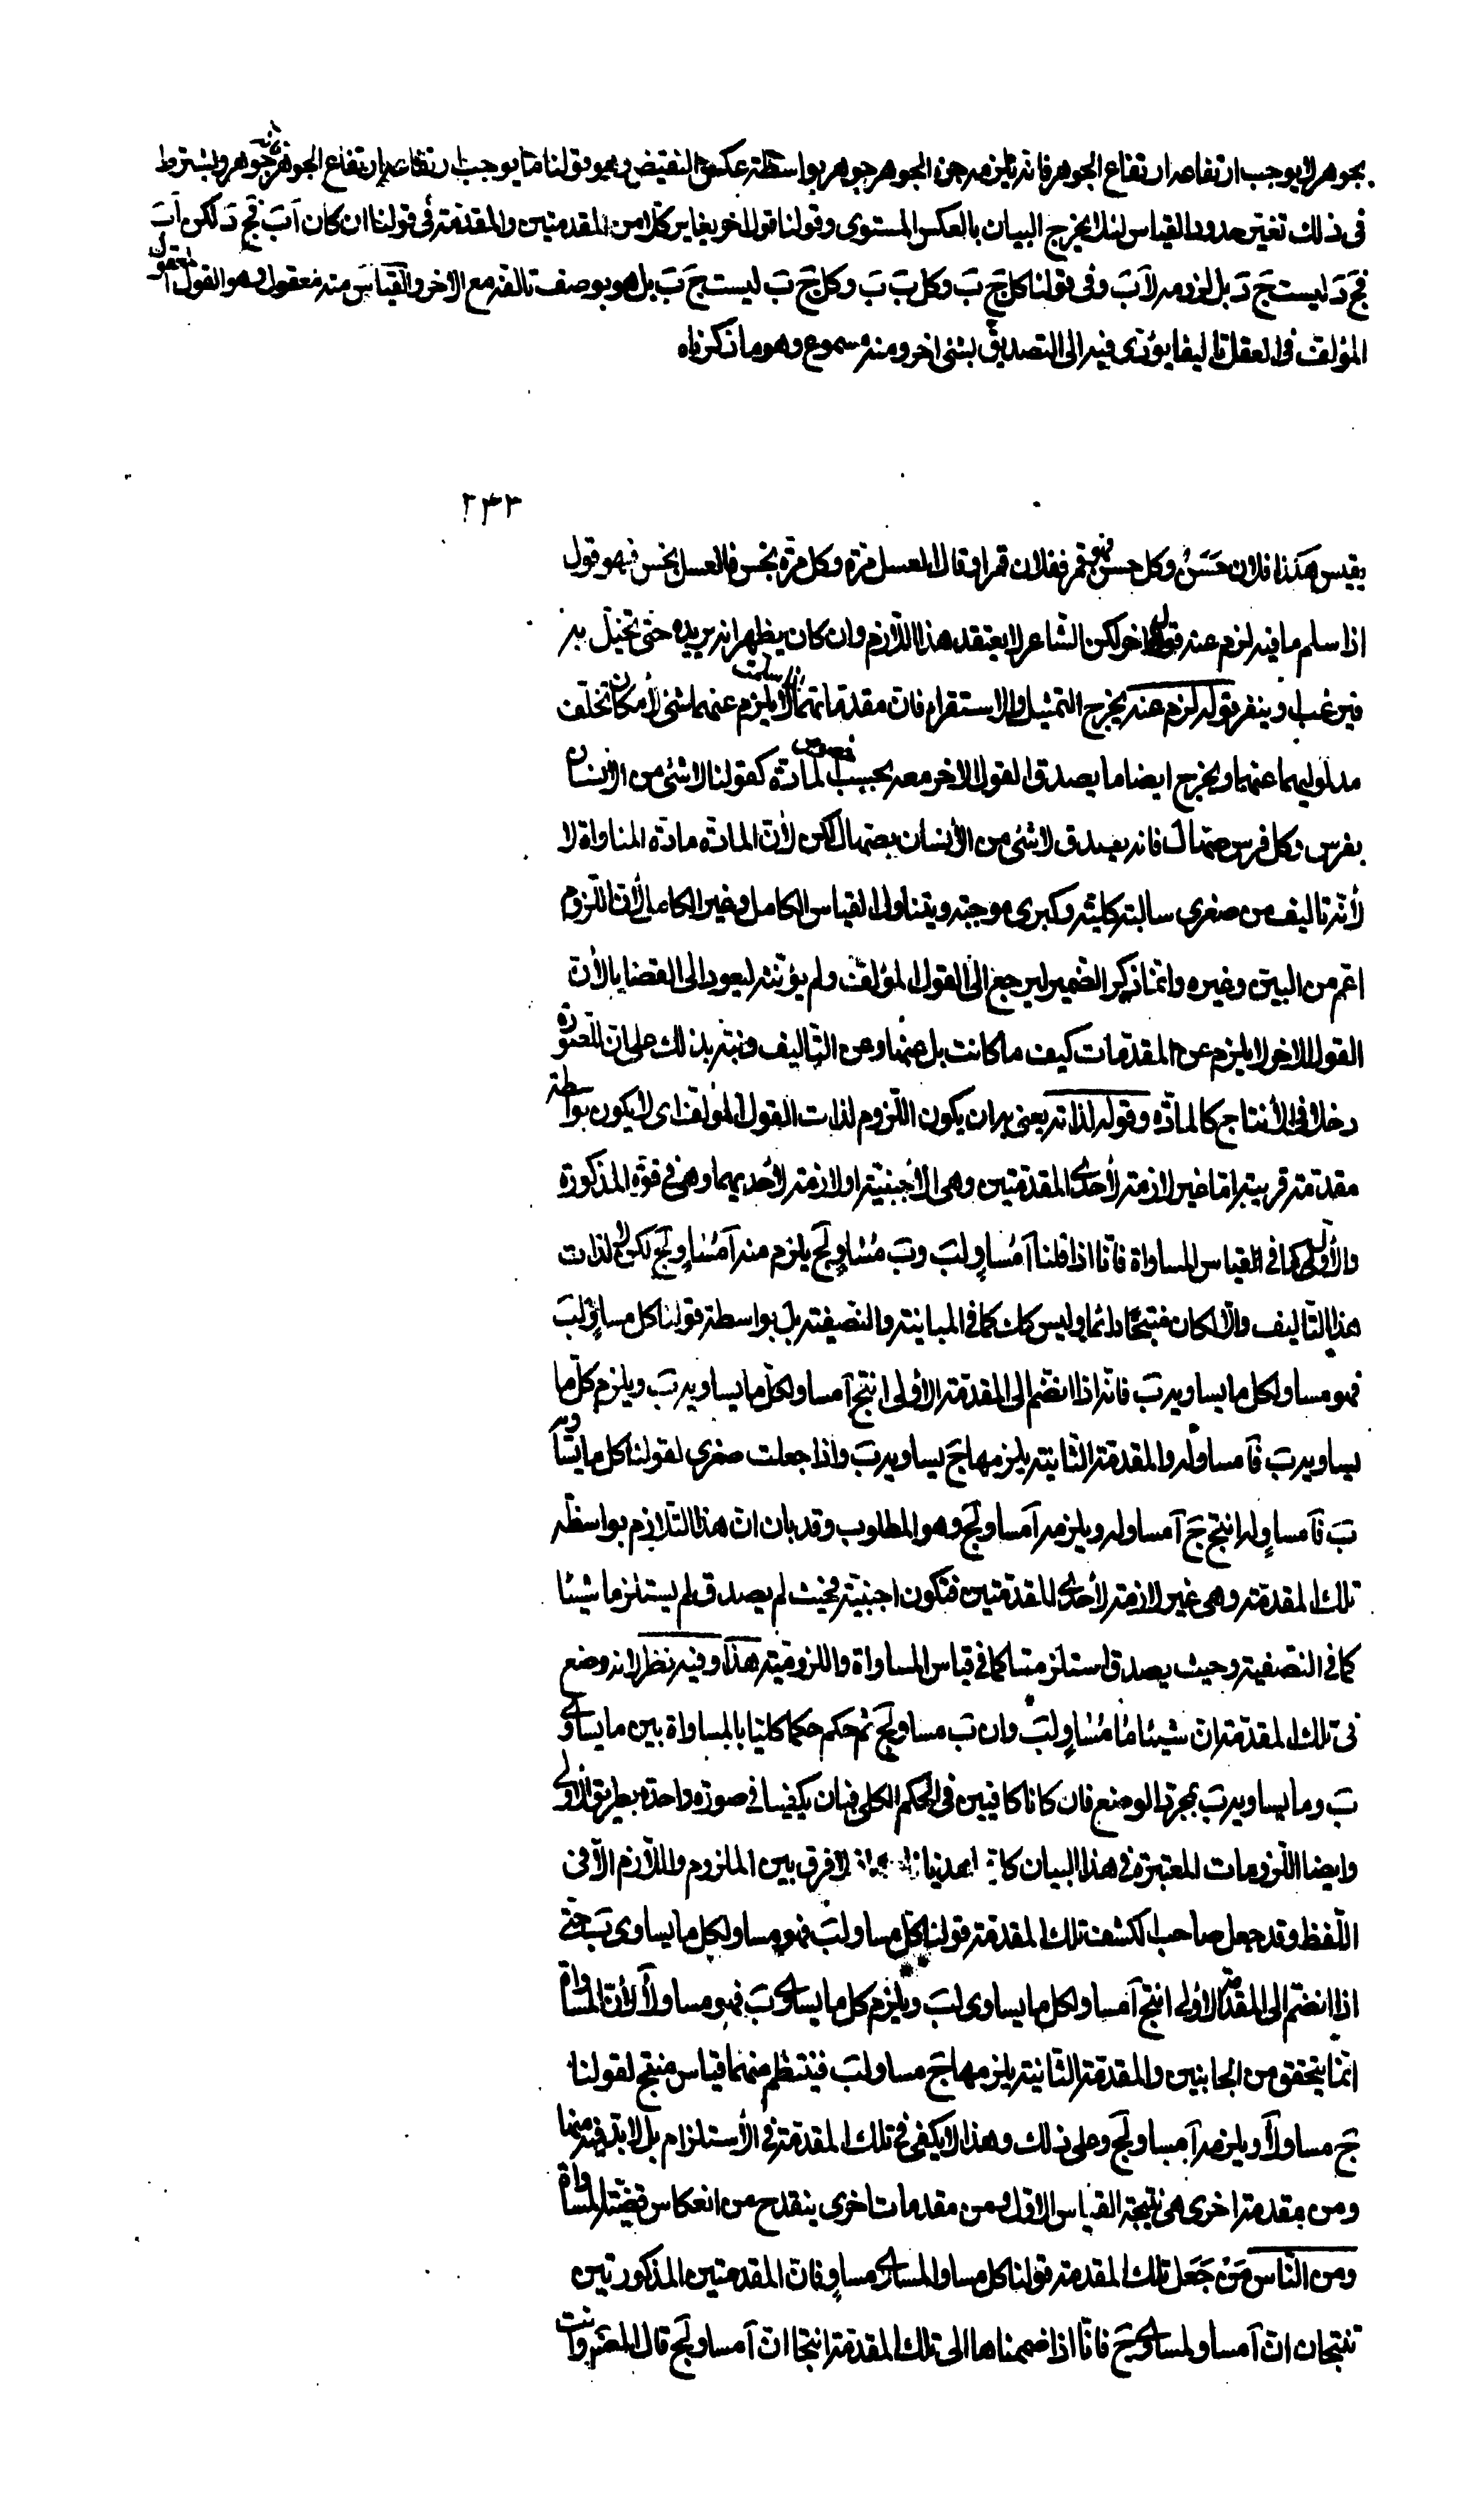 بجوهر لا يوجب ارتفاعه ارتفاع الجوهر فانه يلزمه جزء الجوهر جوهر بواسطة عكس النقيض وهو قولنا ما يوجب ارتفاعه ارتفاع الجوهر جوهر ويشترط
فى ذلك تغيّر حدود القياس لئلا يخرج البيان بالعكس المستوى وقولنا قولا اخر يغاير كلا من المقدمتين والمقدمة فى قولنا ان كان اَبَ فجَ دَ لكن اَبَ
فجَ دَ ليست جَ دَ بل لزومه لاَبَ وفى قولنا كل جَ بَ وكل بَ بَ وكل جَ بَ ليست جَ بَ بل هو بوصف تالفه مع الاخر والقياس منه معقول وهو القول المعقول
المؤلف فى العقل تاليفا يؤدى فيه الى التصديق بشئ اخر ومنه مسموع وهو ما ذكرناه
٢٤٣
يقيس هكذا فلان حَسَنٌ وكل حسن فهو قمر ففلان قمر او قال العسل مرّة وكل مرّة نجس فالعسل نجس فهو قول
اذا سلم ما فيه لزم عنه قول اخر لكن الشاعر لا يعتقد هذا اللازم وان كان يظهر انه يريده حتى تخيّل به
فيرغب او ينفر بقوله لزم عنه يخرج التمثيل والاستقراء فان مقدماتهما اذا سلمت لا يلزم عنهما شئ لأمكان تخلّف
مدلوليهما عنهما ويخرج ايضا ما يصدق القول الاخر معه بحسب خصوص المادة كقولنا لا شئ من الأنسان
بفرس وكل فرس صهال فانه يصدق لا شئ من الأنسان بصهال لكن لأن المادة مادة المساواة لا
لأنه تاليف من صغرى سالبة كلية وكبرى موجبة ويتناول القياس الكامل وغير الكامل لأن اللزوم
اعم من البيّن وغيره وانما ذكر الضمير ليرجع الى القول المؤلف ولم يؤنثه ليعود الى القضايا لأن
القول الاخر لا يلزم عن المقدمات كيف ما كانت بل عنها وعن التأليف ونبّه بذلك على ان للصورة
دخلا فى الأنتاج كالمادّة وقوله لذاته يعنى به ان يكون اللزوم لذات القول المؤلف اى لا يكون بواسطة
مقدمة قريبة امّا غير لازمة لأحدى المقدمتين وهى الأجنبية او لازمة لأحديهما وهى فى قوة المذكورة
والأولى كما فى القياس المساواة فانّا اذا قلنا اَ مُساوٍ لبَ وبَ مُساوٍ لجَ يلزم منه اَ مُساوٍ لجَ لكن لا لذات
هذا التاليف والّا لكان منتجا دائما وليس كذلك كما فى المباينة والنصفية بل بواسطة قولنا كل مساوٍ لبَ
فهو مساو لكل ما يساويه بَ فانّه اذا انضم الى المقدمة الأولى انتج اَ مساو لكل ما يساويه بَ ويلزم كلّ ما
يساويه بَ فاَ مساوٍ له والمقدمة الثانية يلزمها جَ يساويه بَ واذا جعلت صغرى لقولنا كل ما يساويه
بَ فاَ مساوٍ له انتج جَ اَ مساوله ويلزمه اَ مساو لجَ وهو المطلوب وقد بان ان هذا التلازم بواسطة
تلك المقدمة وهى غير لازمة لأحدى المقدمتين فتكون اجنبية فحيث لم يصدق لم يستلزما شيئا
كما فى النصفية وحيث يصدق استلزمتا كما فى قياس المساواة واللزومية هذا وفيه نظر لانه وضع
فى تلك المقدمة ان شيئا مّا مُساوٍ لبَ وان بَ مساو لجَ ثم حكم حكما كليا بالمساواة بين ما يساوى
بَ وما يساويه بَ بمجرد الوضع فان كانا كافيين فى الحكم الكلى فبان يكفيا فى صورة واحدة بطريق الأولى
وايضا اللزومات المعتبرة فى هذا البيان لا فرق بين الملزوم واللازم الّا فى
اللفظ وقد جعل صاحب الكشف تلك المقدمة قولنا كل مساو لبَ فهو مساو لكل ما يساوى بَ حتى
اذا انضم الى المقدمة الاولى انتج اَ مساو لكل ما يساوى لبَ ويلزم كل ما يساوى بَ فهو مساو لاَ لأن المساواة
انما يتحقق من الجانبين والمقدمة الثانية يلزمها جَ مساو لبَ فينتظم منهما قياس منتج لقولنا
جَ مساو لاَ ويلزمه اَ مساو لجَ وعلى ذلك وهذا لا يكفى فى تلك المقدمة فى الأستلزام بل لا بد فيه منها
ومن مقدمة اخرى هى نتيجة القياس الاول ومن مقدمات اخرى ينقدح من انعكاس قضية المساواة
ومن الناس مَنْ جَعَل تلك المقدمة قولنا كل مساو لمساوى مساوٍ فان المقدمتين المذكورتين
تنتجان انّ اَ مساو لمساوى جَ فانّا اذا ضممناها الى تلك المقدمة انتجا ان اَ مساو لجَ قال المصنف وانت